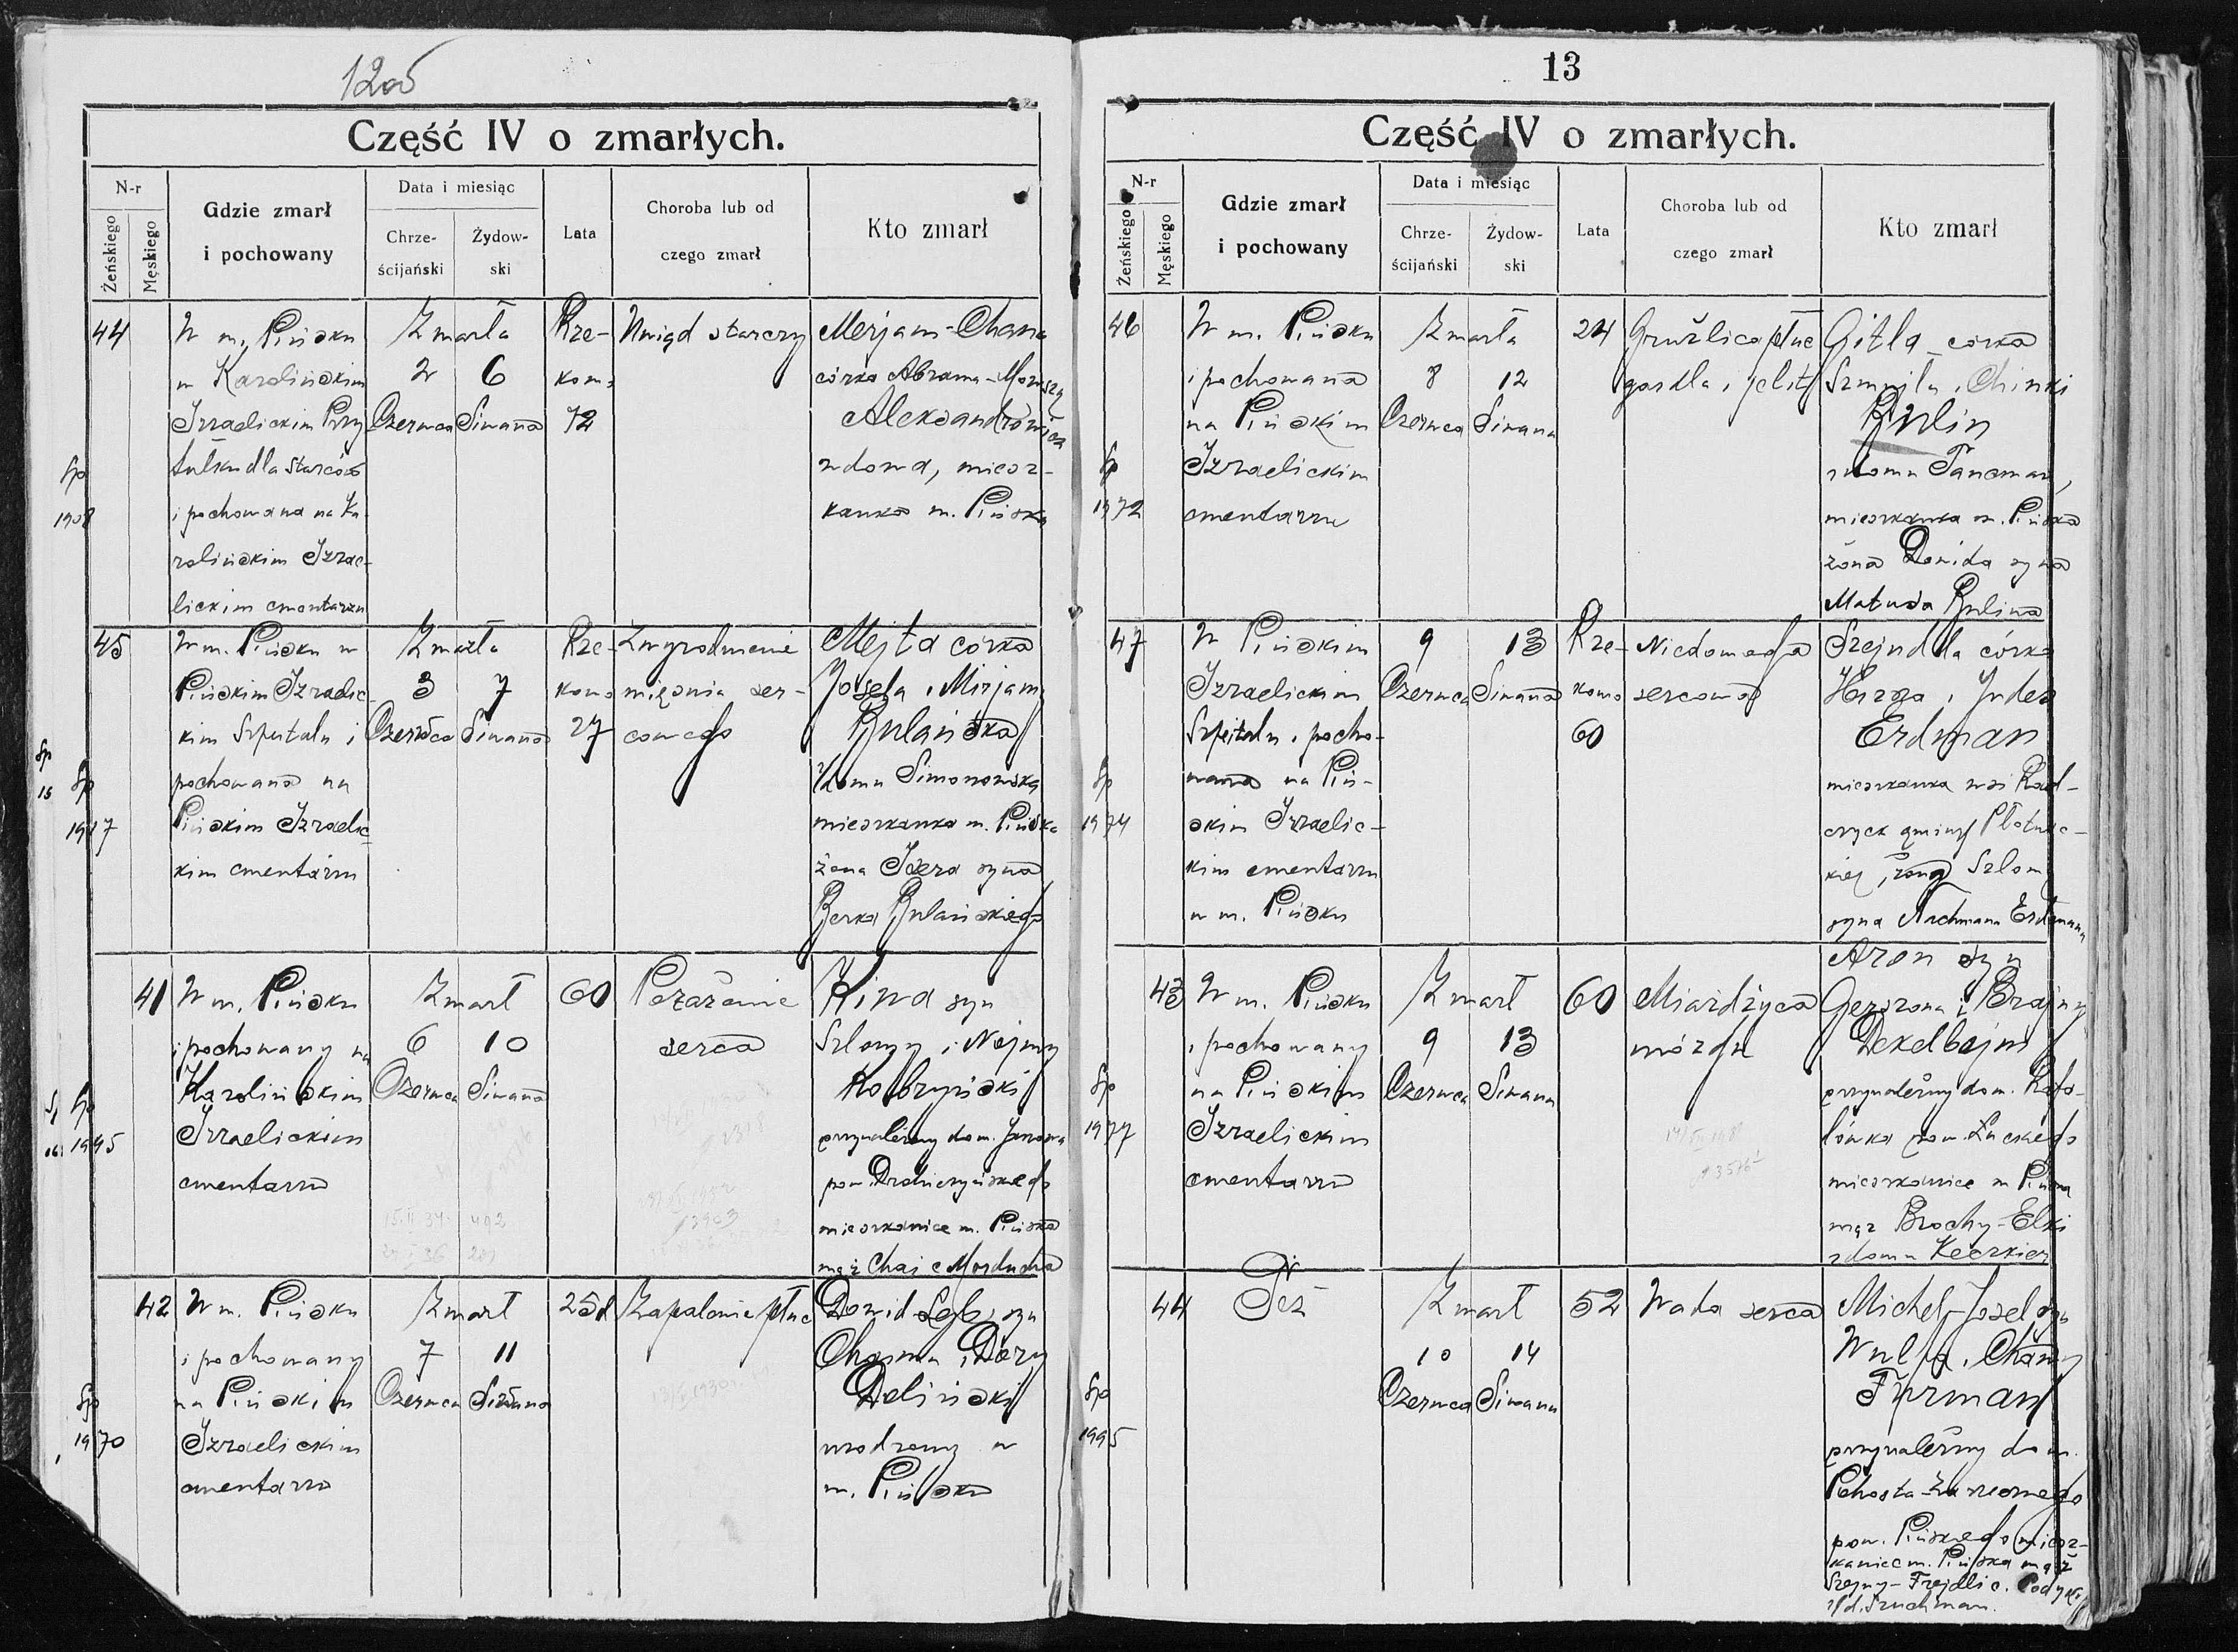 12
Część IV o zmarłych.
N-r
Żeńskiego
Męskiego
Gdzie zmarł
i pochowany
Data i miesiąc
Chrze-
ścijański
Żydow-
ski
Lata
Choroba lub od
czego zmarł
Kto zmarł
44
W m. Pińsku
w Karolińskim
Izraelickim Przy
tułku dla starców
i pochowana na Ka
rolińskim Izrae-
lickim cmentarzu
Zmarła
2 6
Czerwca Siwana
Rze-
komo
72
Uwiąd starczy
Merjam-Chana
córka Abrama-Mowszy
Aleksandrowicza
wdowa, miesz-
kanka m. Pińska
Sp
1908
45
W m. Pińsku w
Pińskim Izraelic
kim Szpitalu i
pochowana na
Pińskim Izraelic
kim cmentarzu
Zmarła
3 7
Czerwca Siwana
Rze-
komo
27
Zwyrodnienie
mięśnia ser-
cowego
Mejta córka
Josela i Mirjamy
Bulańska
z domu Simonowska
mieszkanka m. Pińska
żona Icera syna
Berka Bulańskiego
Sp
16
Sp
1917
41
W m. Pińsku
i pochowany na
Karolińskim
Izraelickim
cmentarzu
Zmarł
6 10
Czerwca Siwana
60
Porażenie
serca
Hina syn
Szlomy i Nejmy
Kobryński
przynależny do m. Janowa
pow. Drohiczyńskiego
mieszkaniec m. Pińska
mąż Chai c Morducha
Sp
1995
15.II.34. 492
42
W m. Pińsku
i pochowany
na Pińskim
Izraelickim
cmentarzu
Zmarł
7 11
Czerwca Siwana
25d
Zapalenie płuc
Dowid Lejb syn
Chaima i Dory
Deliński
urodzony w
m. Pińsku
Sp
1970
13
Część IV o zmarłych.
N-r
Żeńskiego
Męskiego
Gdzie zmarł
i pochowany
Data i miesiąc
Chrze-
ścijański
Żydow-
ski
Lata
Choroba lub od
czego zmarł
Kto zmarł
46
W m. Pińsku
i pochowana
na Pińskim
Izraelickim
cmentarzu
Zmarła
8 12
Czerwca Siwana
24
Gruźlica płuc
gardla i jelit
Gitla córka
Szmujla i Chinki
Rulin
z domu Tancman,
mieszkanka m. Pińska
żona Dowida syna
Matusa Rulina
Sp
1972
47
W Pińskim
Izraelickim
Szpitalu i pocho-
wana na Piń-
skim Izraelic-
kim cmentarzu
w m. Pińsku
9 13
Czerwca Siwana
Rze-
komo
60
Niedomoga
sercowa
Szejndla córka
Hersza i Judes
Erdman
mieszkanka wsi Rad-
czyck gminy Płotnic-
kiej, żona Szlomy
syna Nuchmana Erdmana
Sp
1974
43
W m. Pińsku
i pochowany
na Pińskim
Izraelickim
cmentarzu
Zmarł
9 13
Czerwca Siwana
60
Miażdżyca
mózgu
Aron syn
Gerszona i Brajny
Dekelbojm
przynależny do m. Rafa-
lówka pow. Łuckiego
mieszkaniec m Pińska
mąż Brochy-Elki
z domu
Sp
1977
44
Też
Zmarł
10 14
Czerwca Siwana
52
Wada serca
Michel-Josel syn
Wulfa i Chany
Furman
przynależny do m.
Pohosta-Zarzecznego
pow. Pińskiego miesz-
kaniec m. Pińska mąż
Szejny-Frejdli c.
z d. Szuchman.
Sp
1995